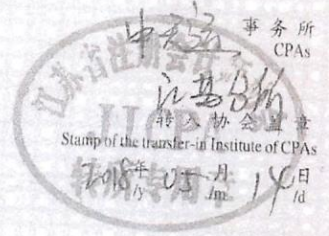 中天运 事务所
CPAs
江苏分所
转入协会盖章
Stamp of the transfer-in Institute of CPAs
2018年 05月 14日
/y /m /d
江苏省注册会计
JICPA
转所专用章